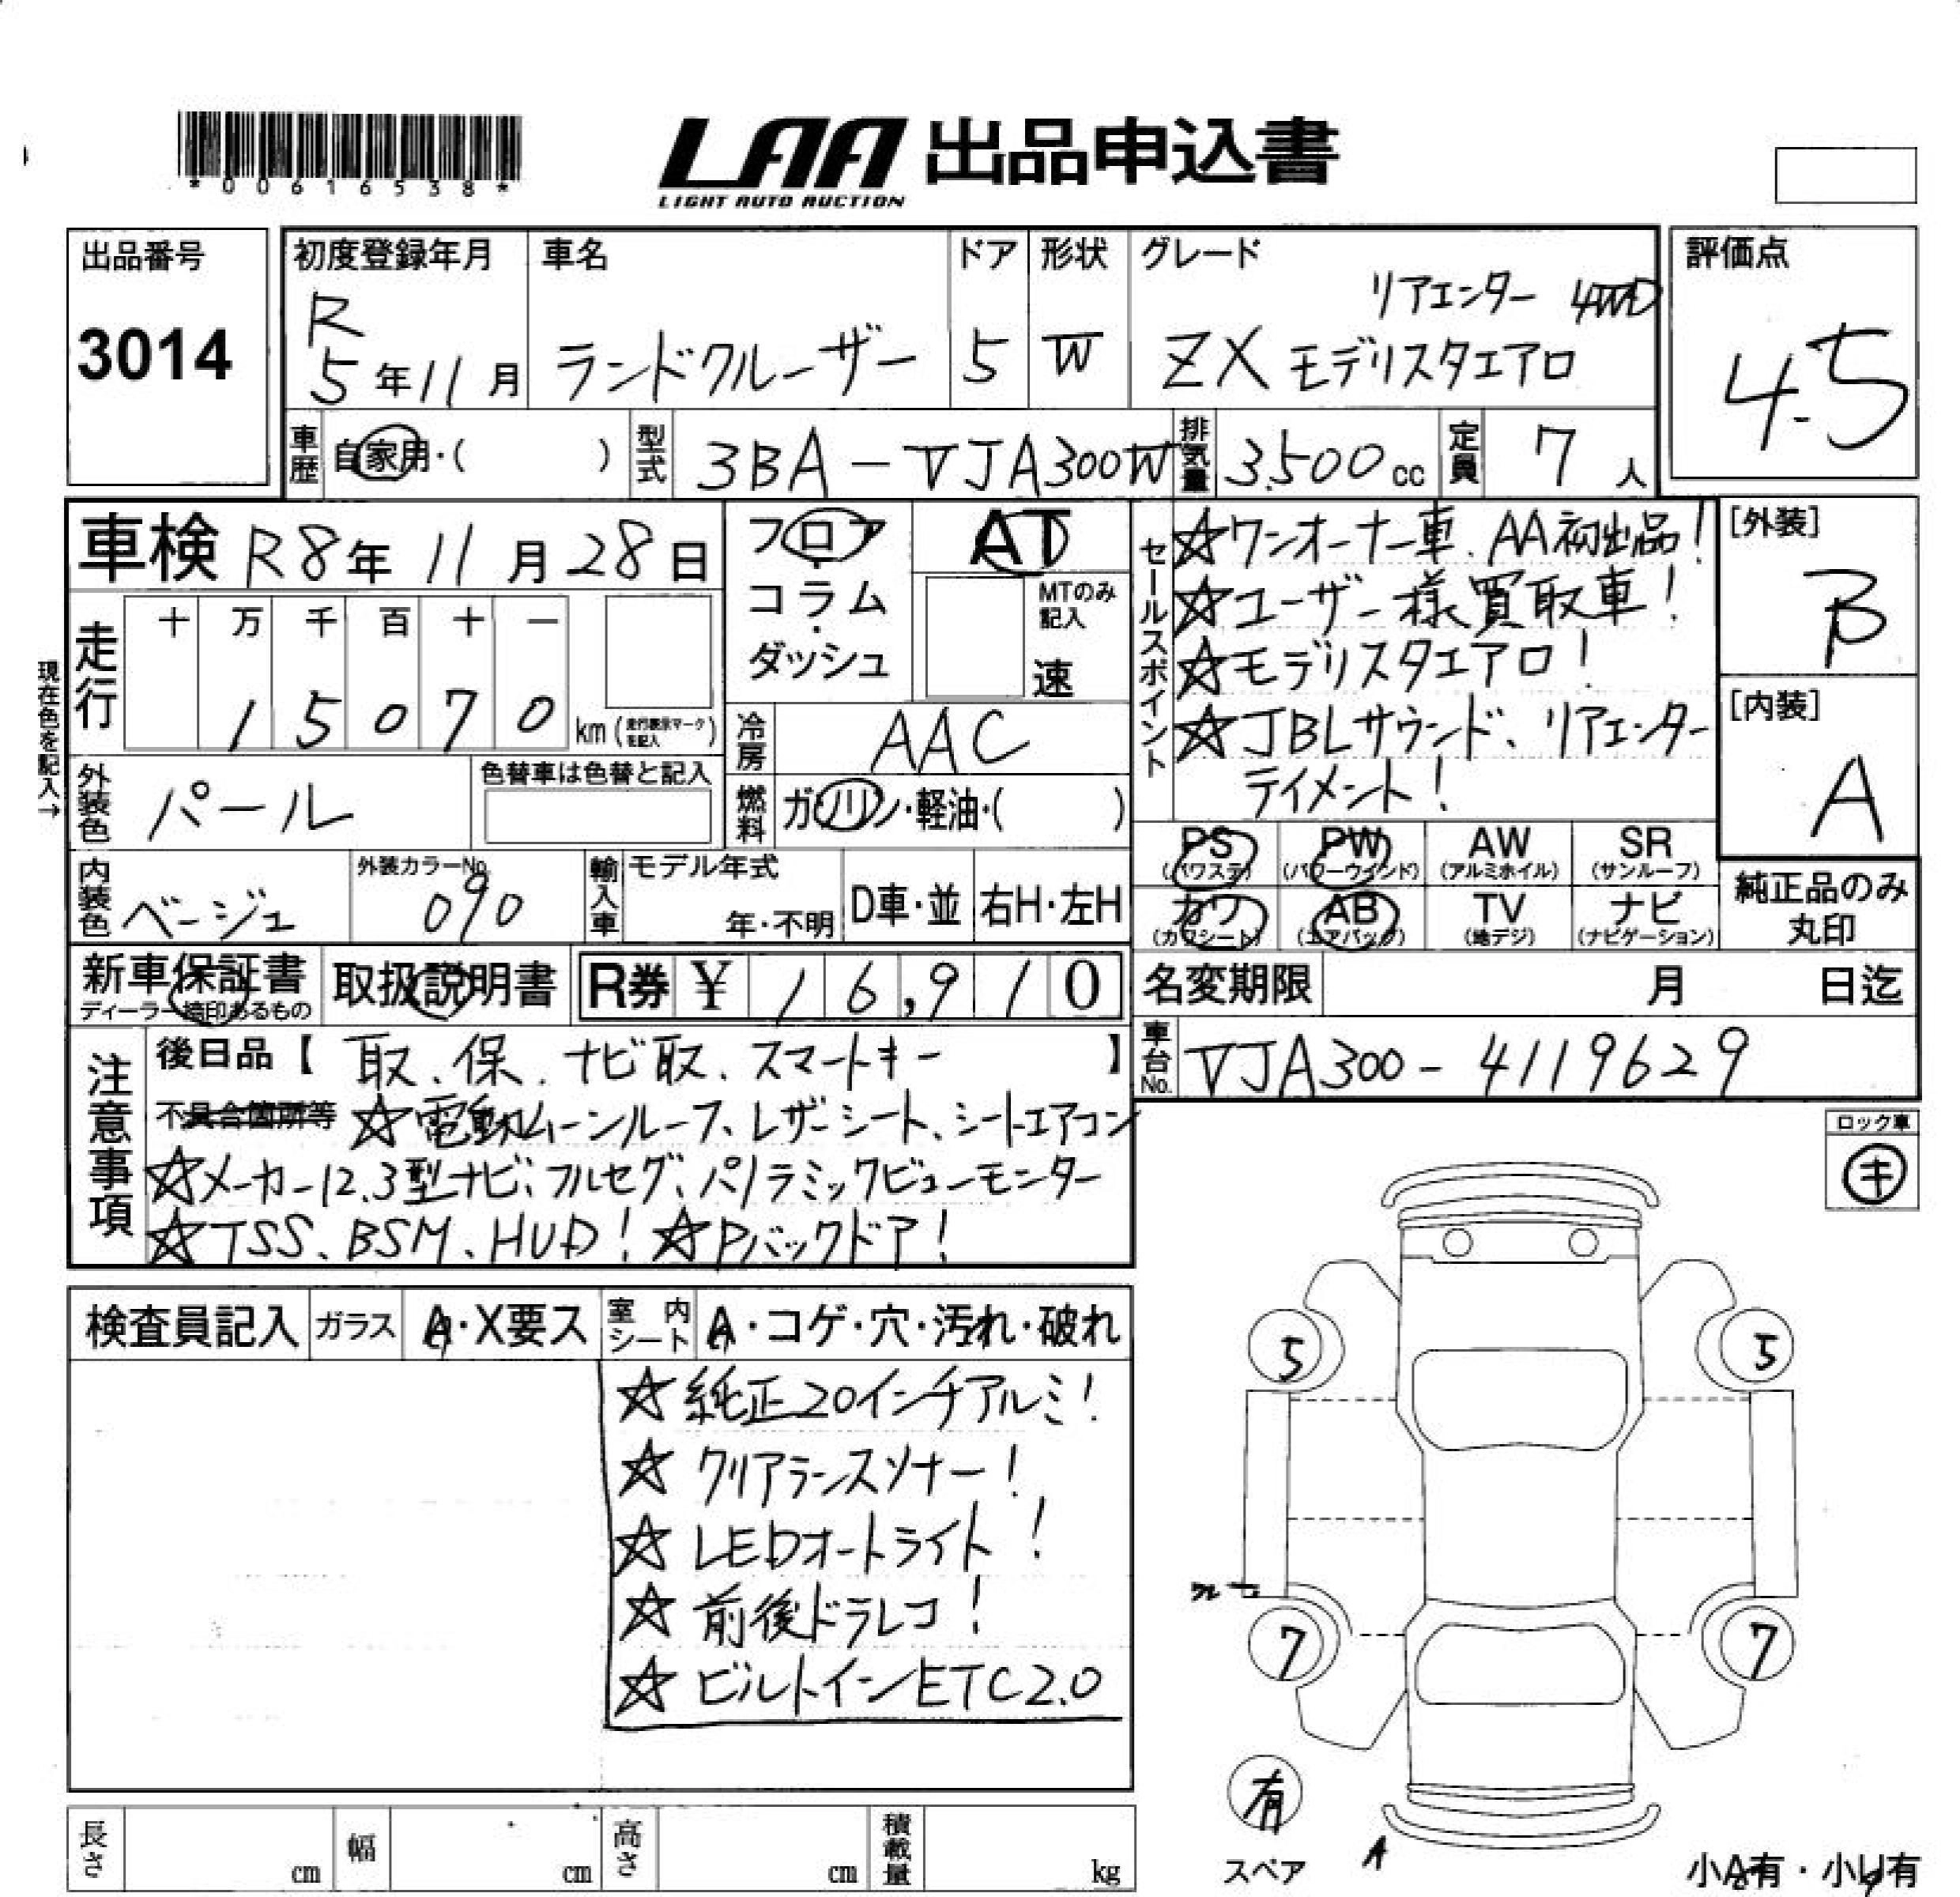 *00616538*
LAA 出品申込書
LIGHT AUTO AUCTION
出品番号
3014
初度登録年月 車名 ドア 形状 グレード 評価点
R 5年11月 ランドクルーザー 5 W リアエンター 4WD
ZX モデリスタエアロ
4.5
車歴 自家用・( ) 型式 3BA-VJA300W 排気量 3,500cc 定員 7人
車検 R8年11月28日
フロア・コラム・ダッシュ
AT
MTのみ記入
速
現在色を記入→
走行 十 万 千 百 十 一
15070 km(走行表示マークを記入)
冷房 AAC
外装色 パール
色替車は色替と記入
燃料 ガソリン・軽油・( )
内装色 ベージュ
外装カラーNo. 090
輸入車 モデル年式 年・不明 D車・並 右H・左H
セールスポイント
☆ワンオーナー車、AA初出品!
☆ユーザー様買取車!
☆モデリスタエアロ!
☆JBLサウンド、リアエンター
テイメント!
[外装]
B
[内装]
A
PS (パワステ) PW (パワーウインド) AW (アルミホイル) SR (サンルーフ)
カワ (カワシート) AB (エアバッグ) TV (地デジ) ナビ (ナビゲーション)
純正品のみ丸印
新車保証書
ディーラー捺印あるもの
取扱説明書
R券 ¥ 16,910
名変期限 月 日迄
車台No. VJA300-4119629
注意事項
後日品【 取、保、ナビ取、スマートキー 】
不具合箇所等 ☆電動ムーンルーフ、レザーシート、シートエアコン
☆メーカー12.3型ナビ、フルセグ、パノラミックビューモニター
☆TSS、BSM、HUD! ☆Pバックドア!
ロック車
キ
検査員記入 ガラス A・X要ス 室内シート A・コゲ・穴・汚れ・破れ
☆純正20インチアルミ!
☆クリアランスソナー!
☆LEDオートライト!
☆前後ドラレコ!
☆ビルトインETC2.0
5 5
7 7
有
スペア
A
小A有・小U有
長さ cm 幅 cm 高さ cm 積載量 kg